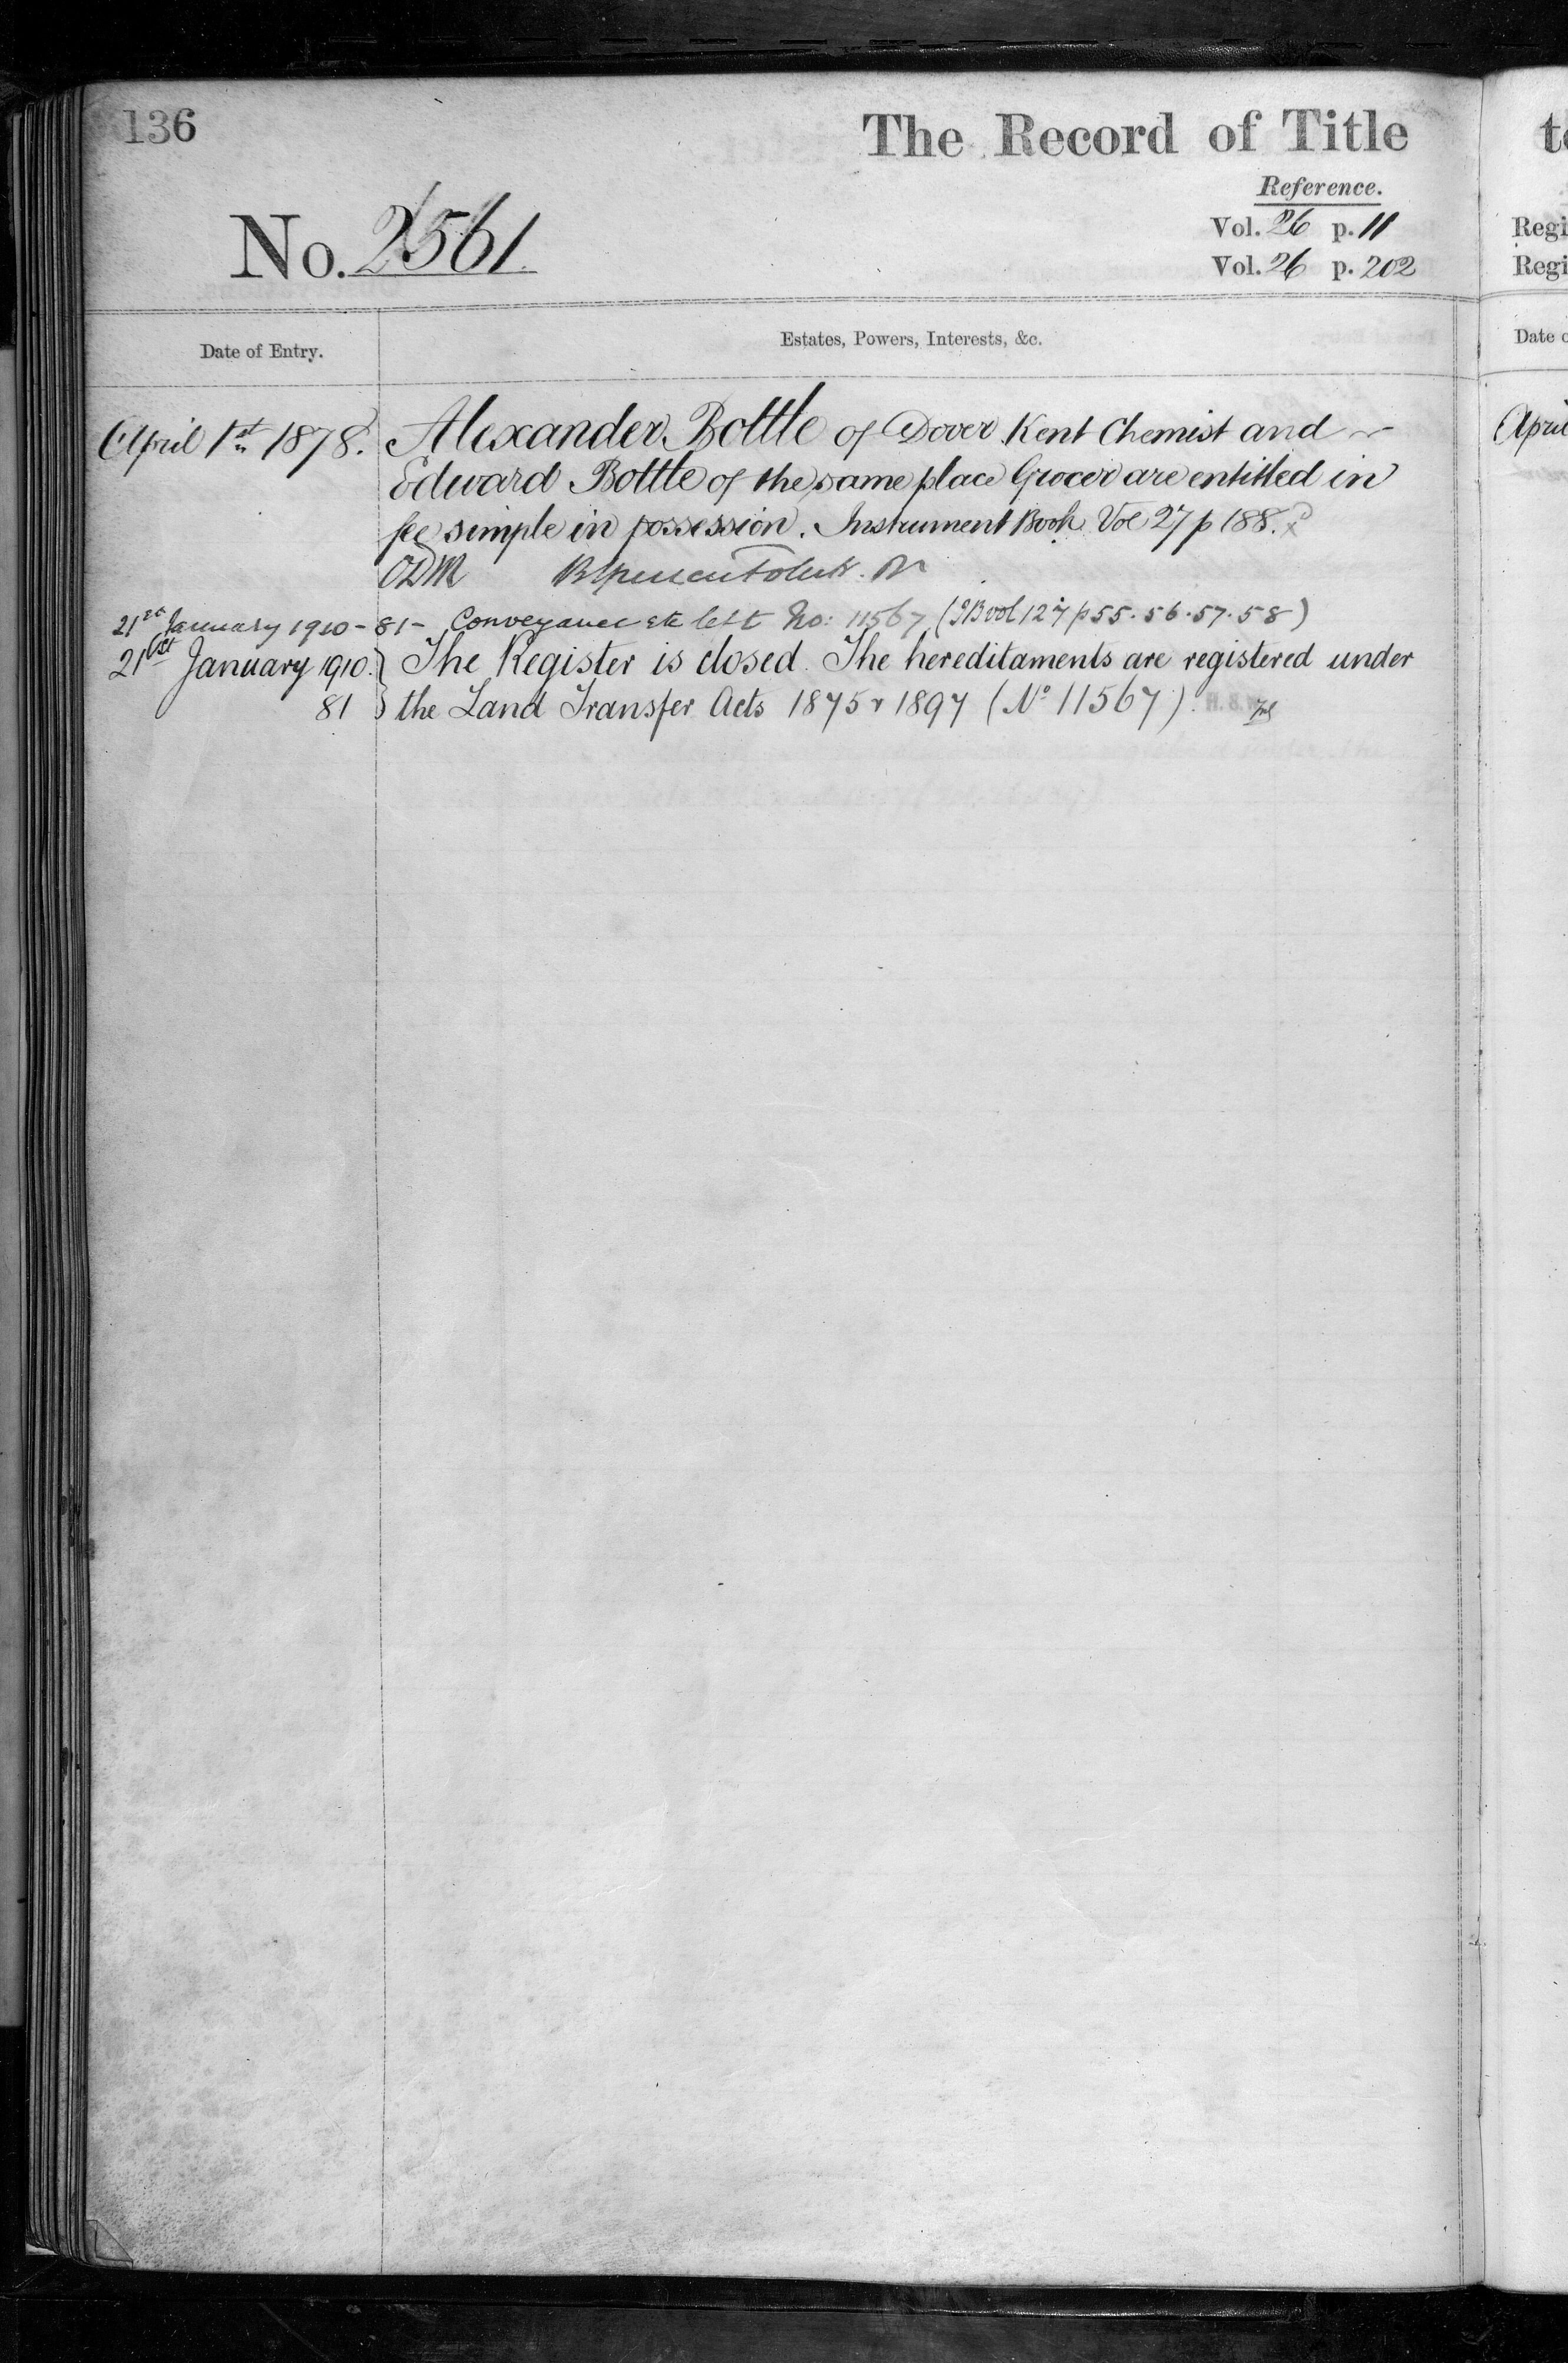 136
The Record of Title
Reference.
No. 2561
Vol. 26 p. 11
Vol. 26 p. 202
Date of Entry.
Estates, Powers, Interests, &c.
April 1st 1878. Alexander Bottle of Dover Kent Chemist and
Edward Bottle of the same place Grocer are entitled in
fee simple in possession. Instrument Book Vol 27 p 188.
21st January 1910 - 81 - Conveyance etc left No: 11567 (IB vol 127 p 55. 56. 57. 58)
21st January 1910. The Register is closed. The hereditaments are registered under
81 the Land Transfer Acts 1875 & 1897 (No 11567).
Regi
Regi
Date
April